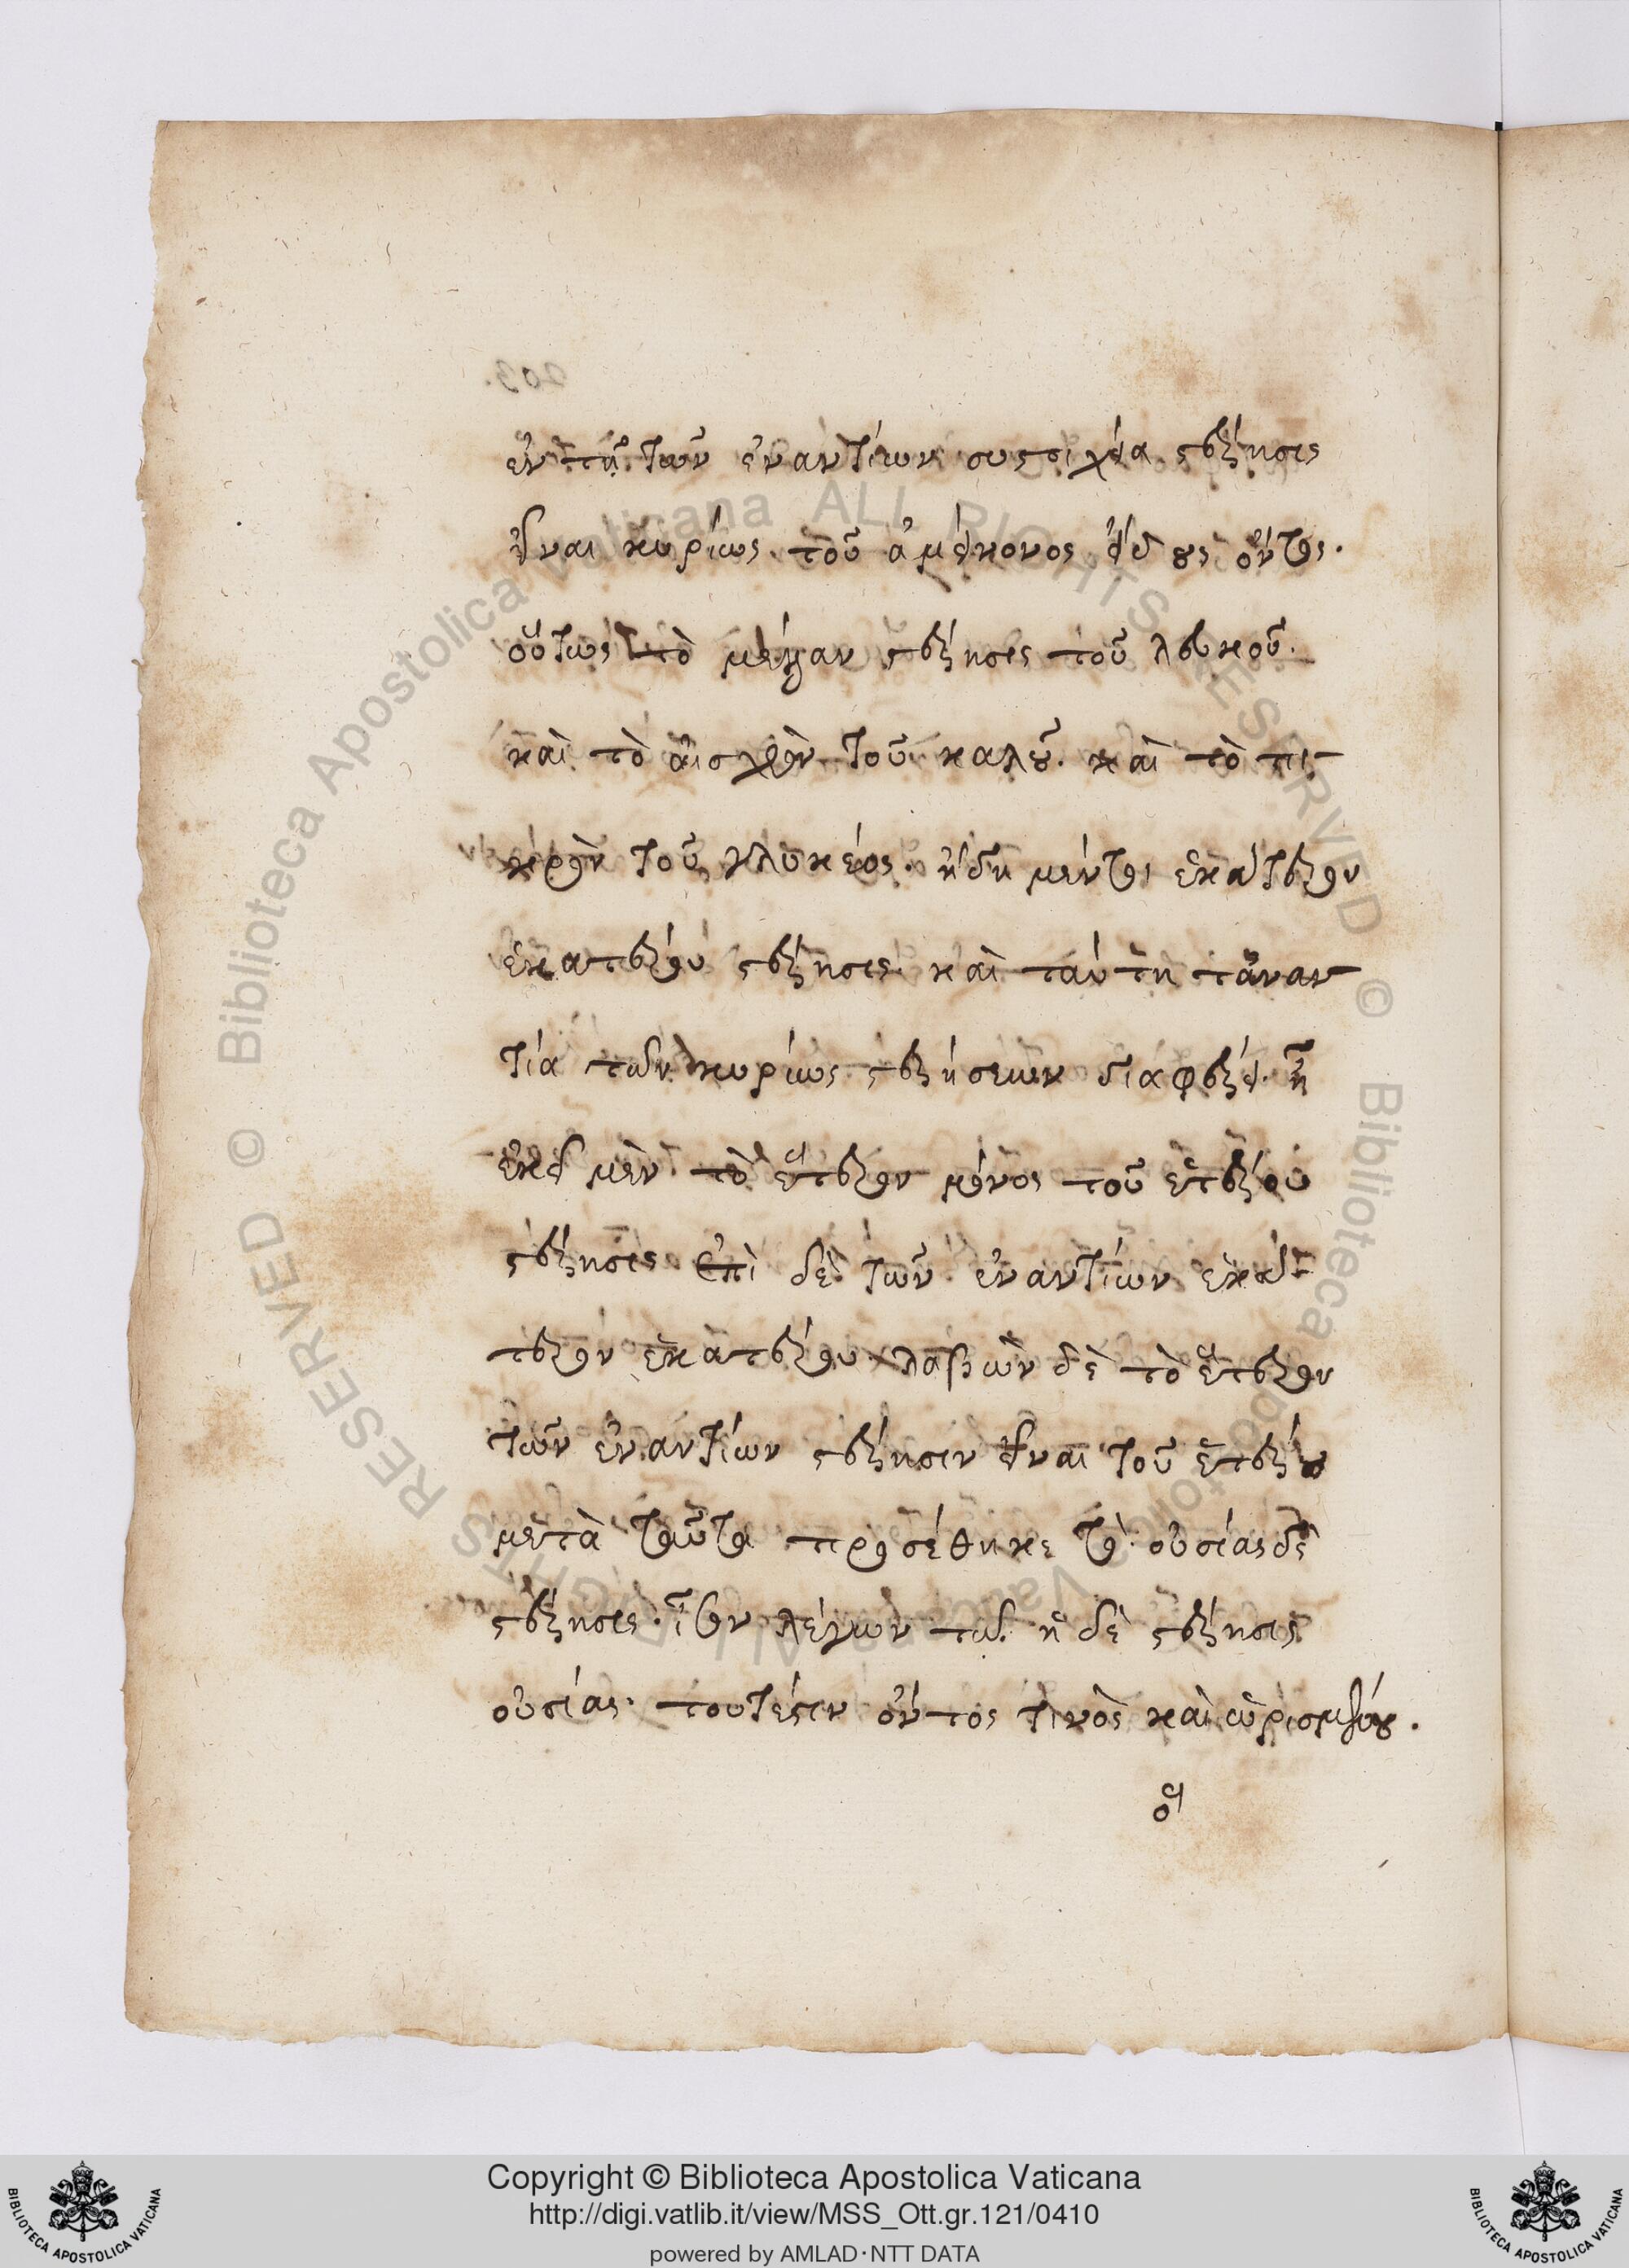 ἐν τῇ τῶν ἐναντίων συστοιχεία στέρησις
εἶναι κυρίως τοῦ ἀμείνονος εἴδους ὄντος.
οὕτως τὸ μέλαν στέρησις τοῦ λευκοῦ.
καὶ τὸ αἰσχρὸν τοῦ καλοῦ. καὶ τὸ πι-
κρὸν τοῦ γλυκέος. ἤδη μέντοι ἑκάτερον
ἑκατέρου στέρησις καὶ ταύτη τἀναν
τία τῶν κυρίως στερήσεων διαφέρει. ἧ
ἐκεῖ μὲν τὸ ἕτερον μόνος τοῦ ἑτέρου
στέρησις ἐπὶ δὲ τῶν ἐναντίων ἑκά-
τερον ἑκατέρου. λαβὼν δὲ τὸ ἕτερον
τῶν ἐναντίων στέρησιν εἶναι τοῦ ἑτέρου
μετὰ ταῦτα προσέθηκε τὸ. οὐσίας δὲ
στέρησις. ἴσον λέγων τῶ. ἡ δὲ στέρησις
οὐσίας. τουτέστιν ὄντος τινὸς καὶ ὡρισμένου.
ὅ
203.
© Biblioteca Apostolica Vaticana ALL RIGHTS RESERVED © Biblioteca Apostolica Vaticana ALL RIGHTS RESERVED
Copyright © Biblioteca Apostolica Vaticana
http://digi.vatlib.it/view/MSS_Ott.gr.121/0410
powered by AMLAD·NTT DATA
BIBLIOTECA APOSTOLICA VATICANA
BIBLIOTECA APOSTOLICA VATICANA